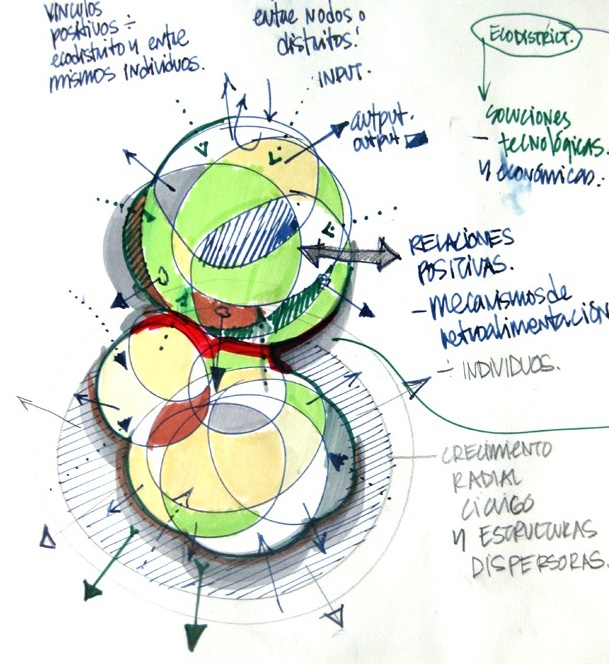 vínculos
positivos ÷
ecodistrito y entre
mismos individuos.
entre nodos o
distritos!
INPUT.
output.
output
ECODISTRICT.
soluciones
- tecnológicas.
y económicas.
RELACIONES
POSITIVAS.
- mecanismos de
retroalimentación
÷ INDIVIDUOS.
CRECIMIENTO
RADIAL
Y ESTRUCTURAS
DISPERSORAS.